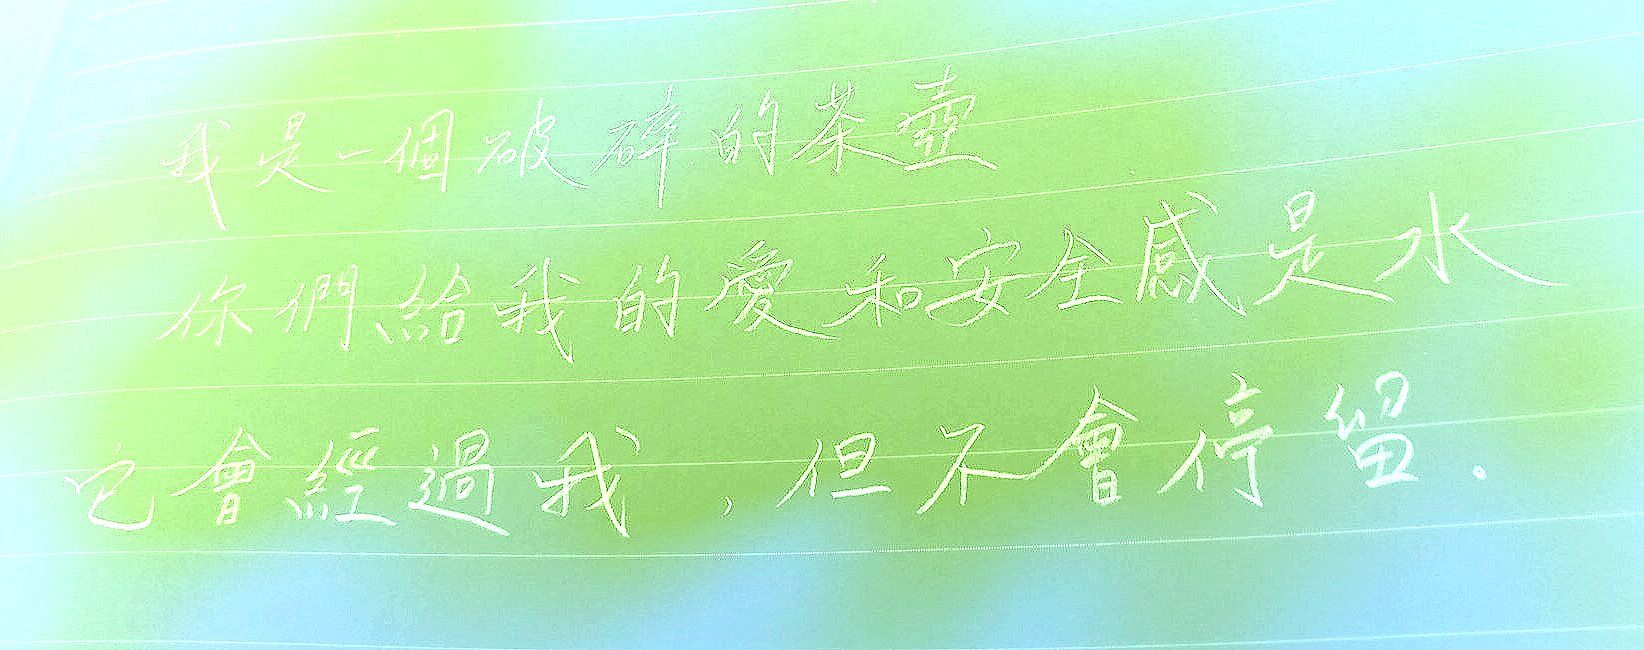 我是一個破碎的茶壺
你們給我的愛和安全感是水
它會經過我，但不會停留.